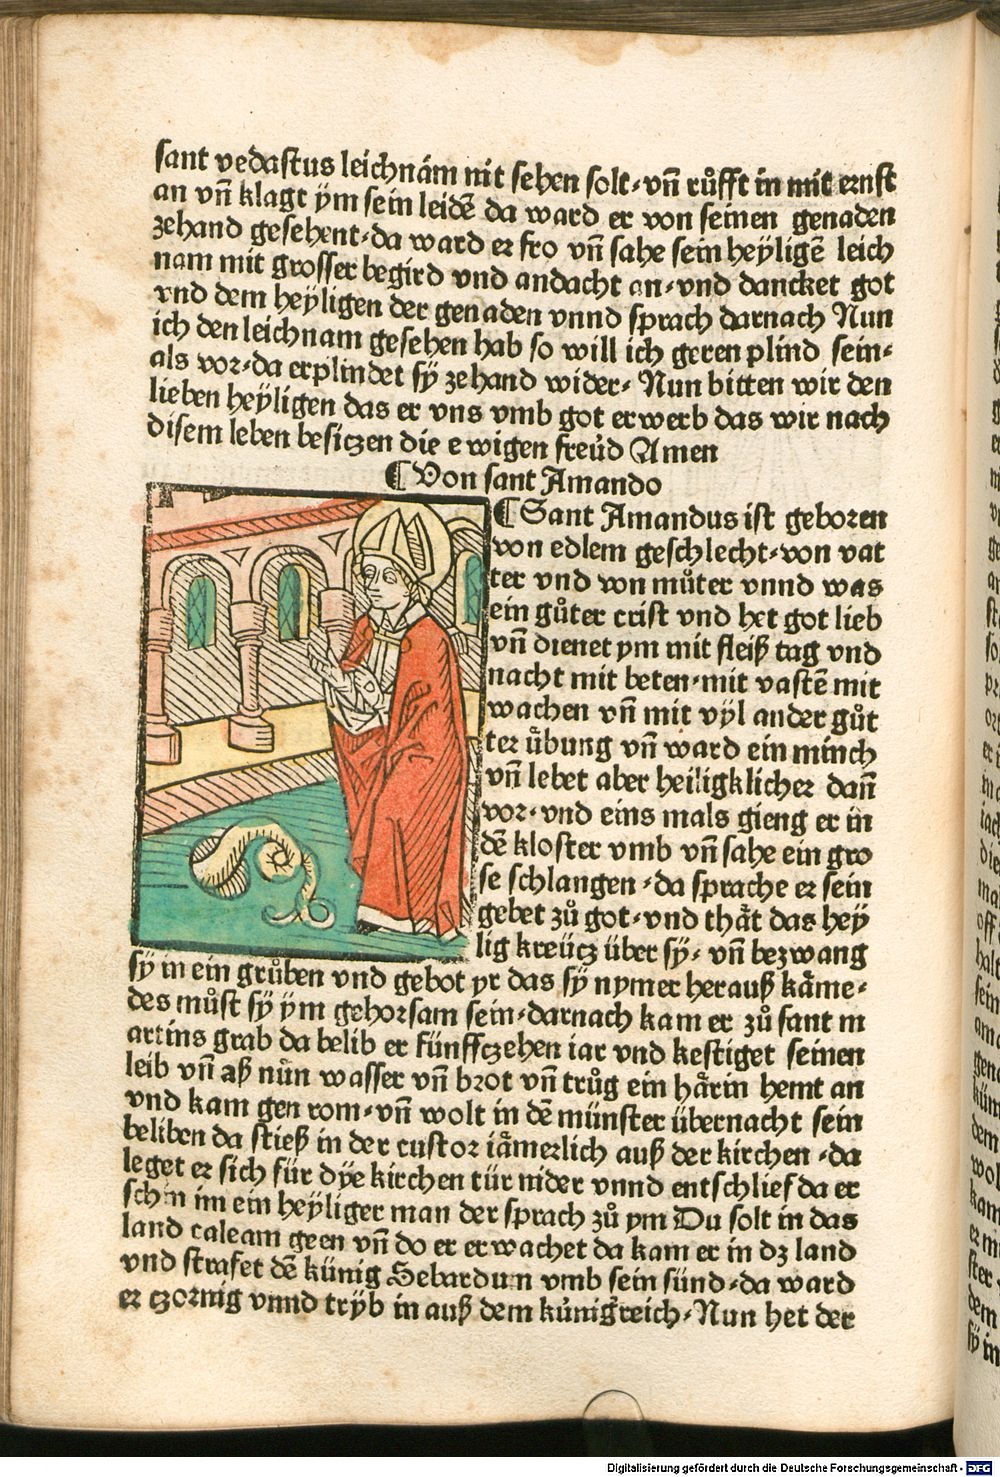 sant vedastus leichnam nit sehen solt⸗vn̄ růfft in mit ernst
an vn̄ klagt ÿm sein leidē da ward er von seinen genaden
zehand gesehent⸗da ward er fro vn̄ sahe sein heÿligē leich
nam mit grosser begird vnd andacht an⸗vnd dancket got
vnd dem heÿligen der genaden vnnd sprach darnach Nun
ich den leichnam gesehen hab so will ich geren plind sein⸗
als vor⸗da erplindet sÿ zehand wider⸗ Nun bitten wir den
lieben heÿligen das er vns vmb got erwerb das wir nach
disem leben besitzen die ewigen freüd Amen
¶ Von sant Amando
¶ Sant Amandus ist geboren
von edlem geschlecht⸗von vat
ter vnd von můter vnnd was
ein gůter crist vnd het got lieb
vn̄ dienet ym mit fleiß tag vnd
nacht mit beten⸗mit vastē mit
wachen vn̄ mit vÿl ander gůt
ter übung vn̄ ward ein münch
vn̄ lebet aber heiligklicher dan̄
vor⸗vnd eins mals gieng er in
dē kloster vmb vn̄ sahe ein gro
se schlangen ⸗da sprache er sein
gebet zů got⸗vnd thät das hey
lig kreütz über sÿ⸗ vn̄ bezwang
sÿ in ein grůben vnd gebot yr das sÿ nymer herauß käme⸗
des můst sÿ ÿm gehorsam sein⸗darnach kam er zů sant m
artins grab da belib er fünffczehen iar vnd kestiget seinen
leib vn̄ aß nün wasser vn̄ brot vn̄ trůg ein härin hemt an
vnd kam gen rom⸗vn̄ wolt in dē münster übernacht sein
beliben da stieß in der custor iämerlich auß der kirchen ⸗da
leget er sich für dÿe kirchen tür nider vnnd entschlief da er
schin im ein heÿliger man der sprach zů ym Du solt in das
land caleam geen vn̄ do er erwachet da kam er in dz land
vnd strafet dē künig Sebardum vmb sein sünd⸗da ward
er czornig vnnd trÿb in auß dem künigreich⸗Nun het der
Digitalisierung gefördert durch die Deutsche Forschungsgemeinschaft - DFG